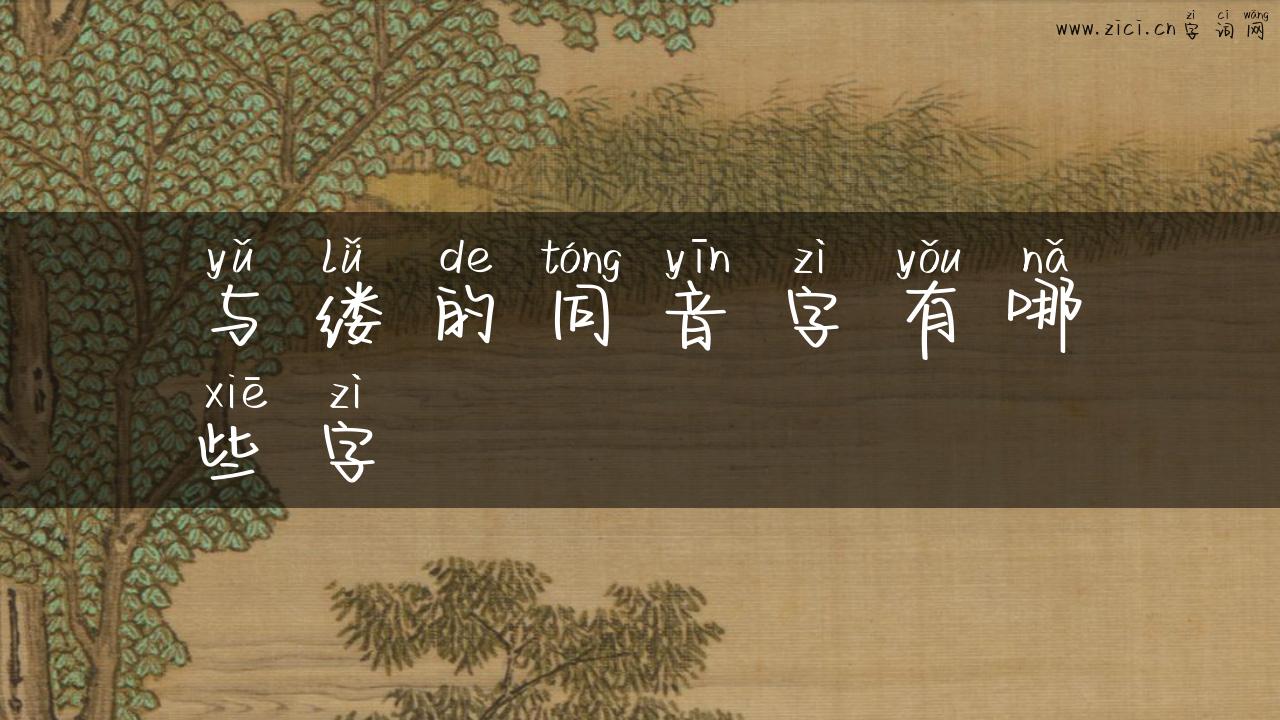 zì cí wǎng
www.zici.cn字词网
yǔ lǚ de tóng yīn zì yǒu nǎ
与缕的同音字有哪
xiē zì
些字